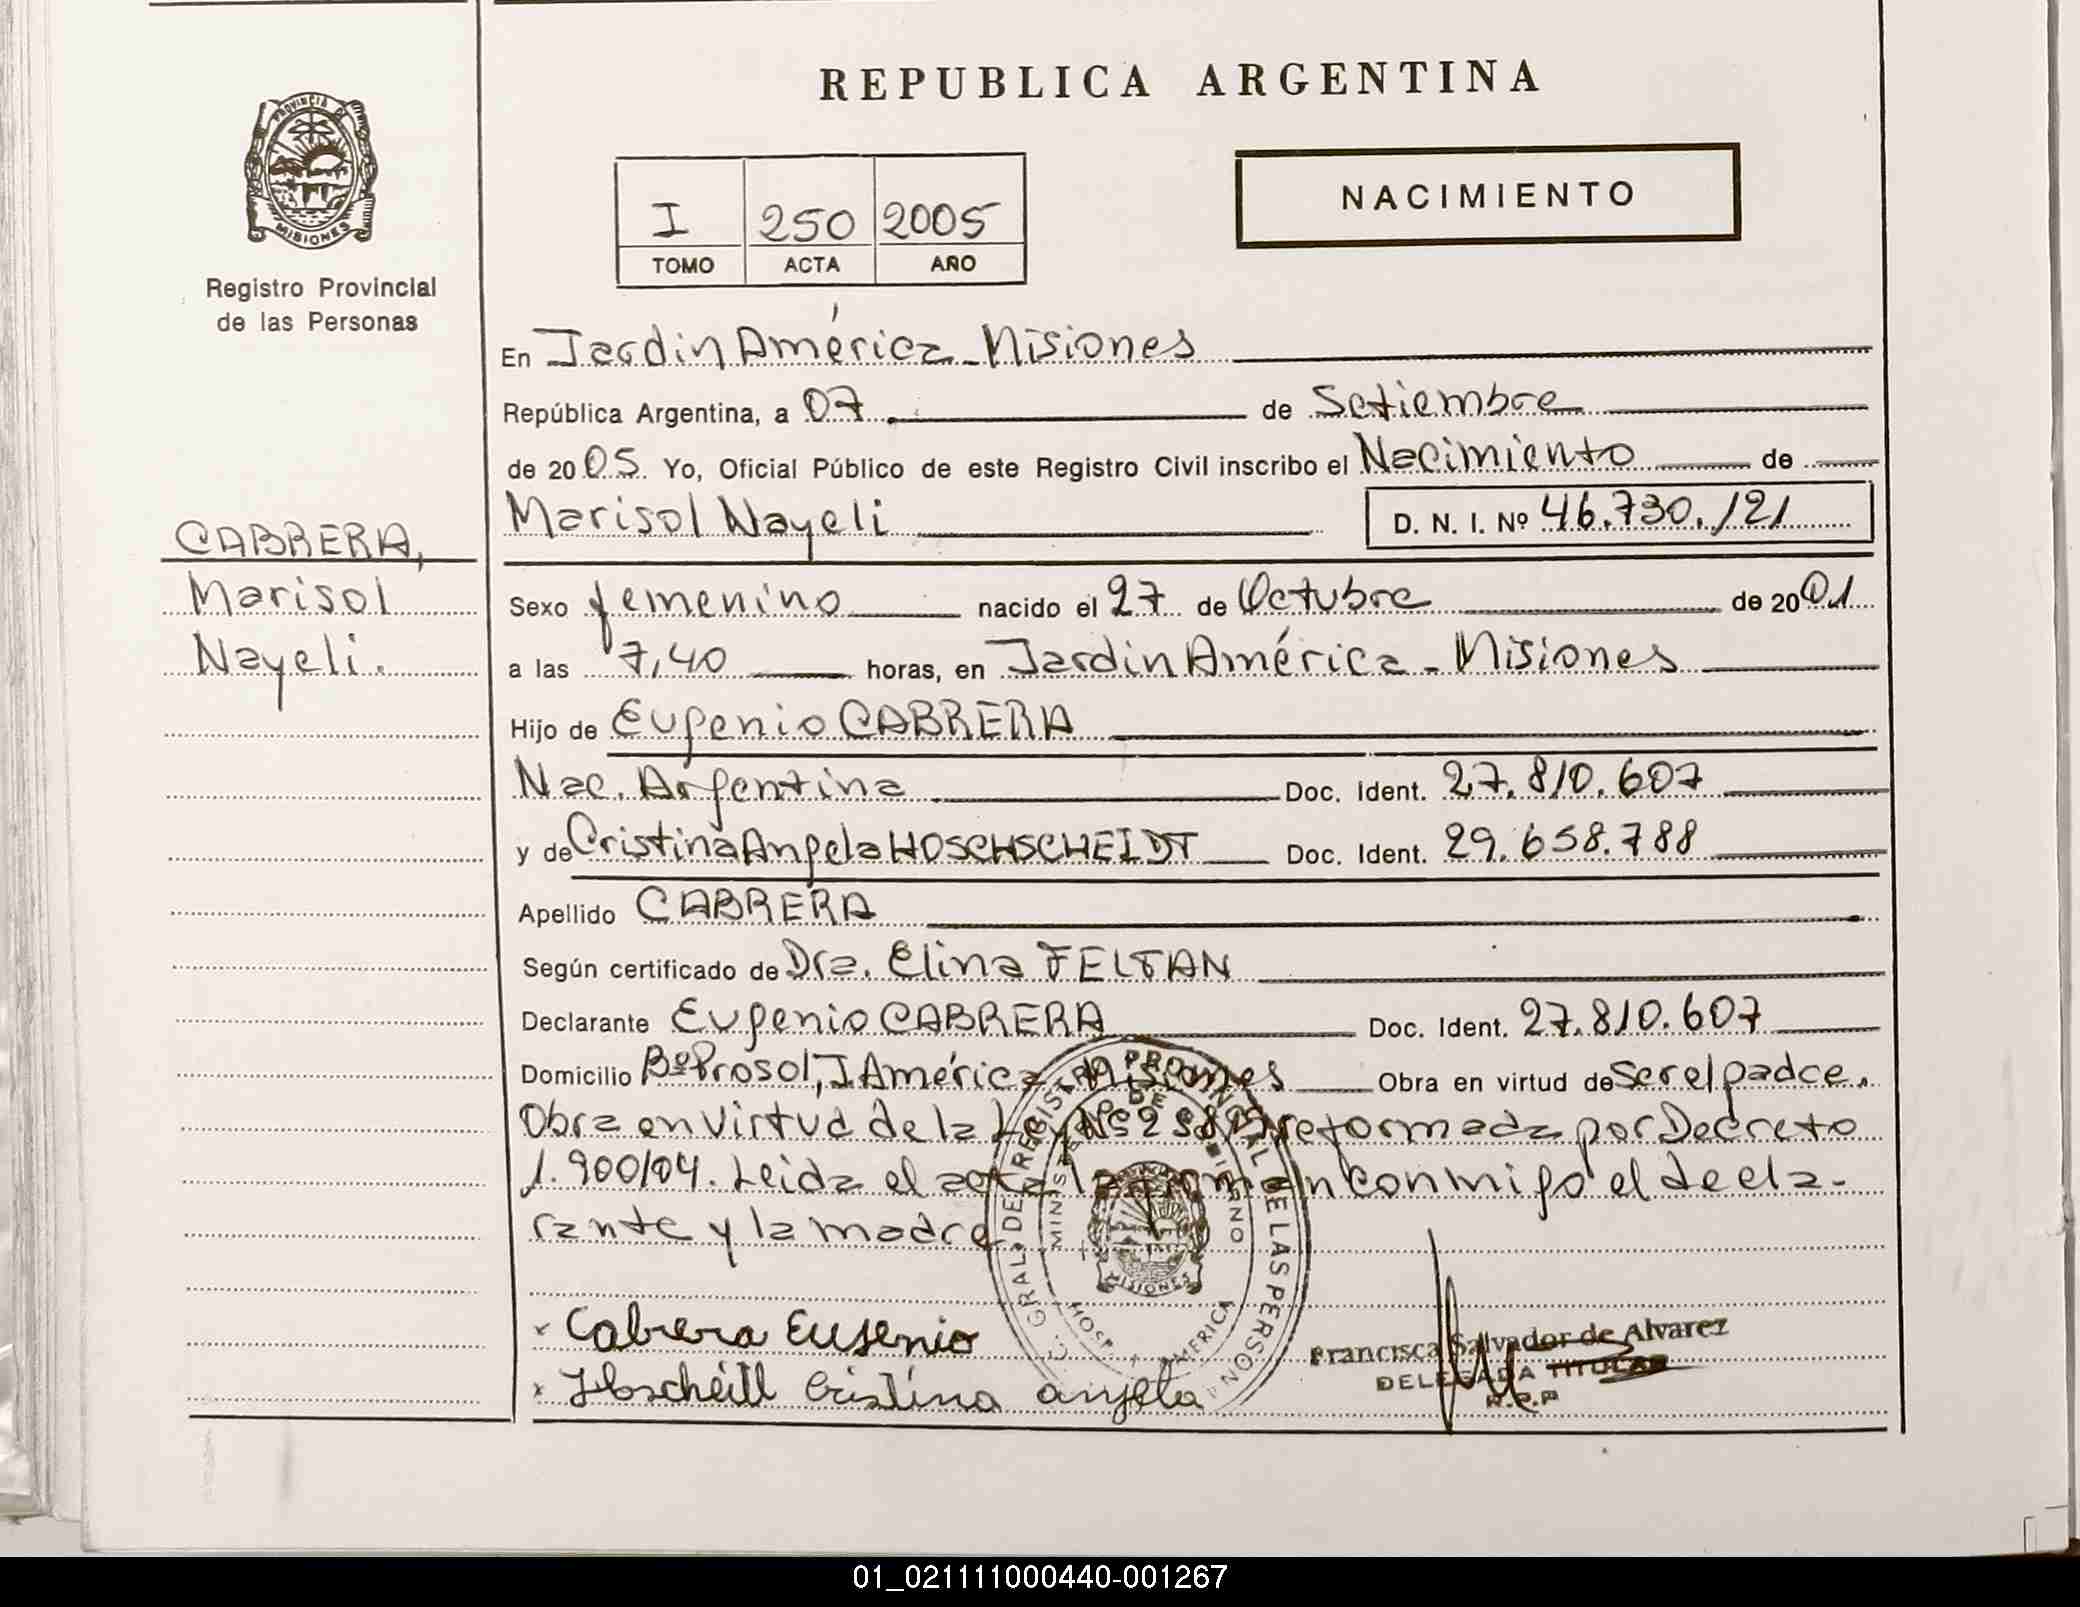 REPUBLICA ARGENTINA
PROVINCIA DE
MISIONES
Registro Provincial
de las Personas
NACIMIENTO
I 250 2005
TOMO ACTA AÑO
En Jardin América - Misiones
República Argentina, a 07 de Setiembre
de 2005. Yo, Oficial Público de este Registro Civil inscribo el Nacimiento de
Marisol Nayeli D. N. I. Nº 46.730.121
CABRERA,
Marisol
Nayeli.
Sexo femenino nacido el 27 de Octubre de 2001
a las 7,40 horas, en Jardin América - Misiones
Hijo de Eugenio CABRERA
Nac. Argentina Doc. Ident. 27.810.607
y de Cristina Angela HOSCHSCHEIDT Doc. Ident. 29.658.788
Apellido CABRERA
Según certificado de Dra. Elina FELTAN
Declarante Eugenio CABRERA Doc. Ident. 27.810.607
Domicilio Bº Prosol, J América - Misiones Obra en virtud de ser el padre.
Obra en virtud de la Ley Nº reformada por Decreto
1.900/04. Leida el acta la firman conmigo el decla-
rante y la madre
GRAL. DEL REGISTRO PROVINCIAL DE LAS PERSONAS
MINISTERIO DE GOBIERNO
MISIONES
HOSP. AMERICA
x Cabrera Eugenio
x Cristina angela
Francisca Salvador de Alvarez
DELEGADA TITULAR
R.P.P
01_021111000440-001267